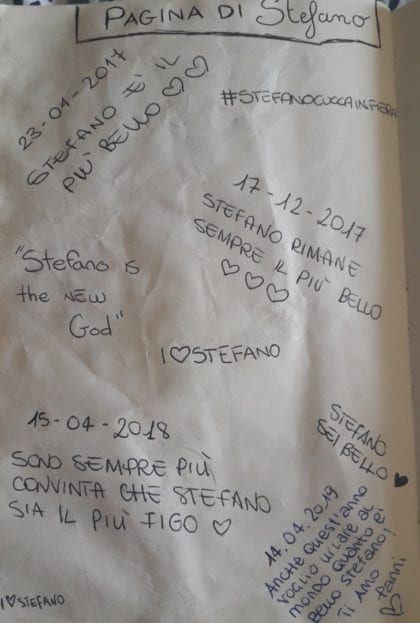 PAGINA DI Stefano
23-01-2017
STEFANO È IL
PIÙ BELLO ♡♡
#STEFANOCUCCAINFIERA
17-12-2017
STEFANO RIMANE
SEMPRE IL PIÙ BELLO
♡♡♡
"Stefano is
the NEW
God"
I♡STEFANO
15-04-2018
SONO SEMPRE PIÙ
CONVINTA CHE STEFANO
SIA IL PIÙ FIGO ♡
STEFANO
SEI BELLO ♥
14.04.2019
ANCHE QUEST'ANNO
VOGLIO URLARE AL
MONDO QUANTO È
BELLO STEFANO!
TI AMO
♡ Fanni
I♡STEFANO